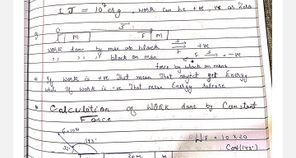 1 J = 10⁷ erg , work can be +ve, -ve or Zero
M F M
work done by man on block → +ve
" " " block on man → -ve
force by block on man
* If work is +ve that mean that object get Energy
when If work is -ve that mean Energy release
* Calculation of WORK done by Constant
Force
F=10N
143°
20m
W = 10x20
Cos(143°)